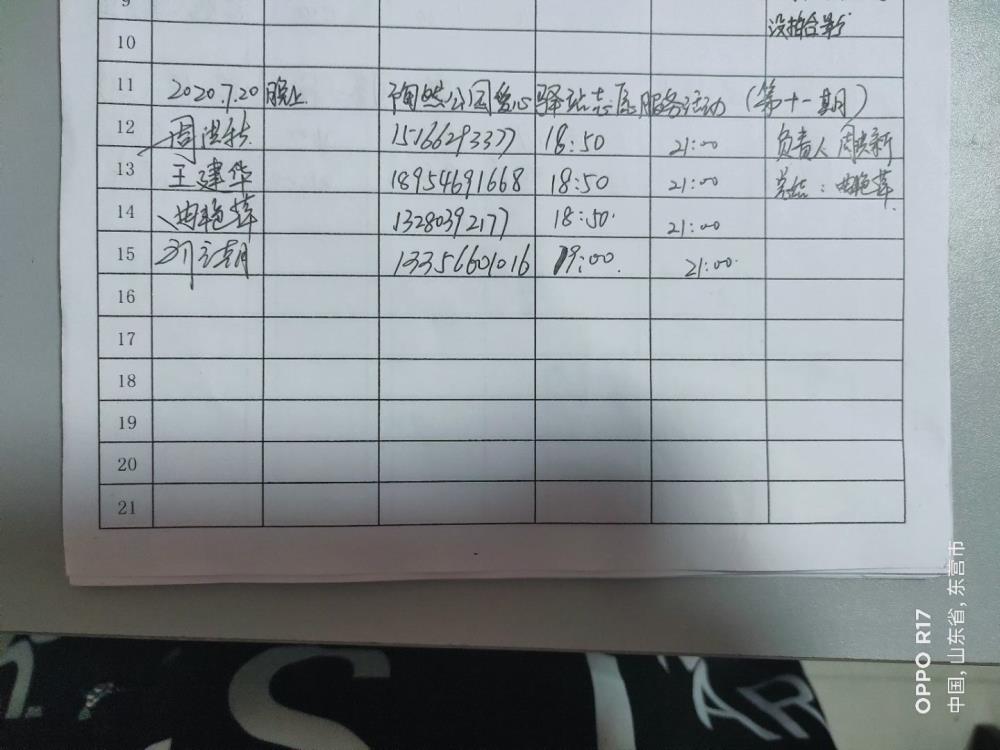 9
没拍合影
10
11 2020.7.20 晚上 陶然公园爱心驿站志愿服务活动（第十一期）
12 周洪新 15166293377 18:50 21:00 负责人 周洪新
13 王建华 18954691668 18:50 21:00 总结：曲艳萍
14 曲艳萍 13280392177 18:50 21:00
15 刘立朝 13356601016 19:00 21:00
16
17
18
19
20
21
S
AR
OPPO R17
中国, 山东省, 东营市